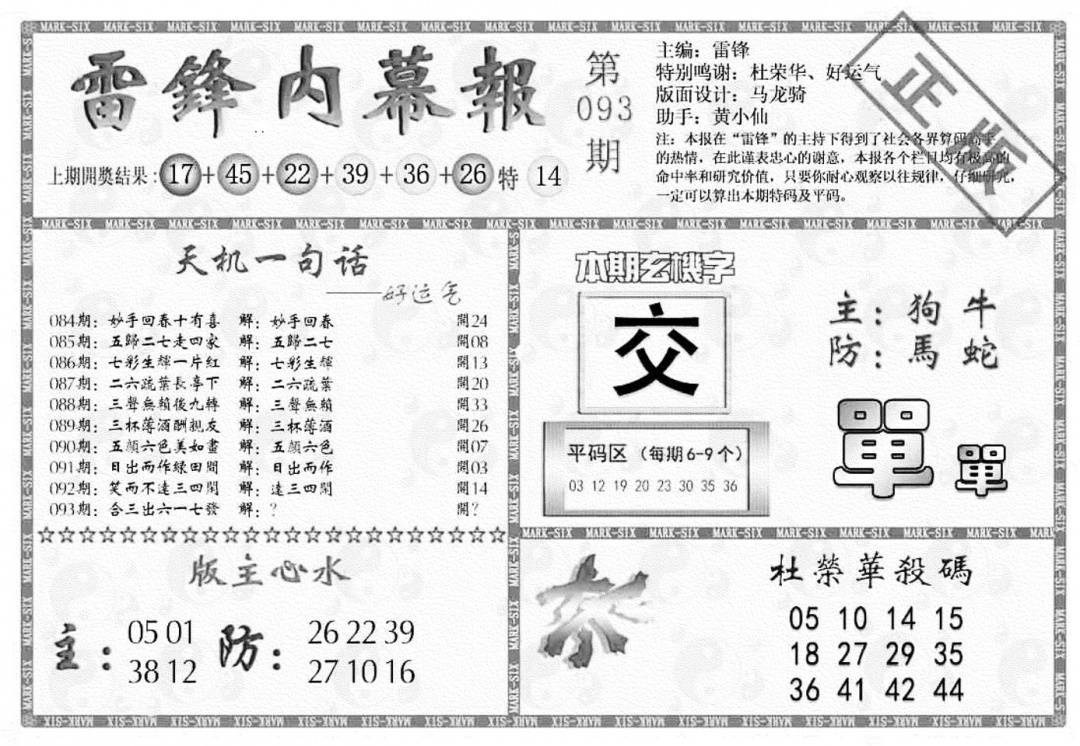 雷鋒内幕報
第
093
期
主编：雷锋
特别鸣谢：杜荣华、好运气
版面设计：马龙骑
助手：黄小仙
注：本报在“雷锋”的主持下得到了社会各界算码高手
的热情，在此谨表忠心的谢意，本报各个栏目均有极高的
命中率和研究价值，只要你耐心观察以往规律，仔细研究，
一定可以算出本期特码及平码。
正版
上期開獎结果：17+45+22+39+36+26 特 14
天机一句话
——好运气
084期：妙手回春十有喜 解：妙手回春 開24
085期：五歸二七走四家 解：五歸二七 開08
086期：七彩生輝一片紅 解：七彩生輝 開13
087期：二六疏葉長亭下 解：二六疏葉 開20
088期：三聲無賴後九轉 解：三聲無賴 開33
089期：三杯薄酒酬親友 解：三杯薄酒 開26
090期：五顔六色美如畫 解：五顔六色 開07
091期：日出而作緑田間 解：日出而作 開03
092期：笑而不達三四開 解：達三四開 開14
093期：合三出六一七發 解：？ 開？
☆☆☆☆☆☆☆☆☆☆☆☆☆☆☆☆☆☆☆☆☆☆☆
版主心水
主：
05 01
38 12
防：
26 22 39
27 10 16
本期玄機字
交
平码区（每期6-9个）
03 12 19 20 23 30 35 36
主：狗 牛
防：馬 蛇
單 單
杀
杜榮華殺碼
05 10 14 15
18 27 29 35
36 41 42 44
MARK-SIX